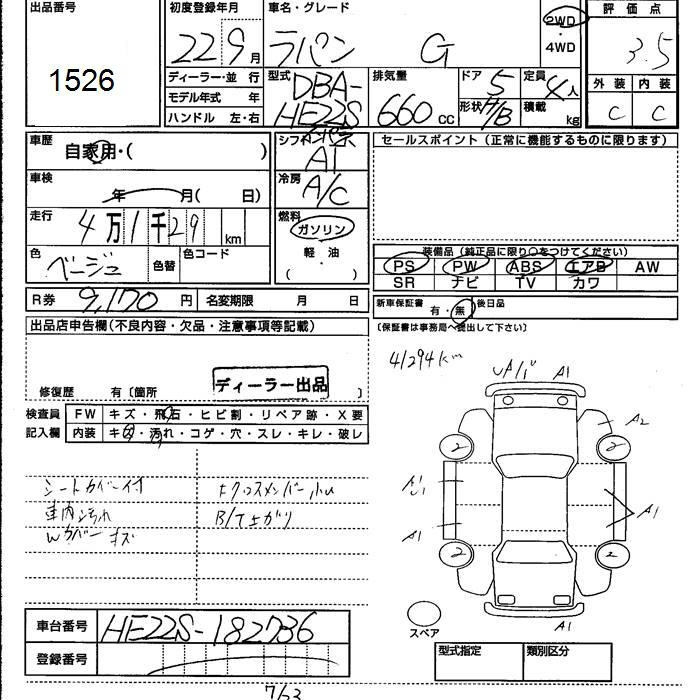 出品番号
1526
初度登録年月
22 9月
車名・グレード
ラパン G
2WD
・
4WD
評価点
3.5
外装 内装
C C
ディーラー・並 行
モデル年式 年
ハンドル 左・右
型式
DBA-
HE22S
排気量
660 cc
ドア
5
定員
4人
形状 H/B
積載
kg
車歴
自家用・( )
シフト
AT
車検
年 月( 日)
冷房
A/C
走行
4万1千29 km
燃料
ガソリン
軽・油
( )
色
ベージュ
色替
色コード
R券 9,170 円
名変期限 月 日
セールスポイント (正常に機能するものに限ります)
装備品(純正品に限り○をつけてください)
PS PW ABS エアB AW
SR ナビ TV カワ
新車保証書
有・無
後日品
(保証書は事務局へ提出して下さい)
出品店申告欄(不良内容・欠品・注意事項等記載)
ディーラー出品
修復歴 有〔箇所 〕
検査員
記入欄
FW キズ・飛石・ヒビ割・リペア跡・X要
内装 キズ・汚れ・コゲ・穴・スレ・キレ・破レ
シートカバー付
車内汚れ
Wカバー キズ
B/Tさがり
41294km
A1
A2
2
2
A1
A1
A1
2
2
A1
スペア
車台番号 HE22S-182736
登録番号
型式指定 類別区分
7/63